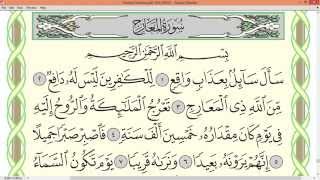 سُورَةُ المَعَارِجِ
بِسْمِ ٱللَّهِ ٱلرَّحْمَٰنِ ٱلرَّحِيمِ
سَأَلَ سَآئِلٌۢ بِعَذَابٍ وَاقِعٍ ١ لِّلْكَٰفِرِينَ لَيْسَ لَهُۥ دَافِعٌ ٢
مِّنَ ٱللَّهِ ذِى ٱلْمَعَارِجِ ٣ تَعْرُجُ ٱلْمَلَٰٓئِكَةُ وَٱلرُّوحُ إِلَيْهِ
فِى يَوْمٍ كَانَ مِقْدَارُهُۥ خَمْسِينَ أَلْفَ سَنَةٍ ٤ فَٱصْبِرْ صَبْرًا جَمِيلًا
٥ إِنَّهُمْ يَرَوْنَهُۥ بَعِيدًا ٦ وَنَرَىٰهُ قَرِيبًا ٧ يَوْمَ تَكُونُ ٱلسَّمَآءُ